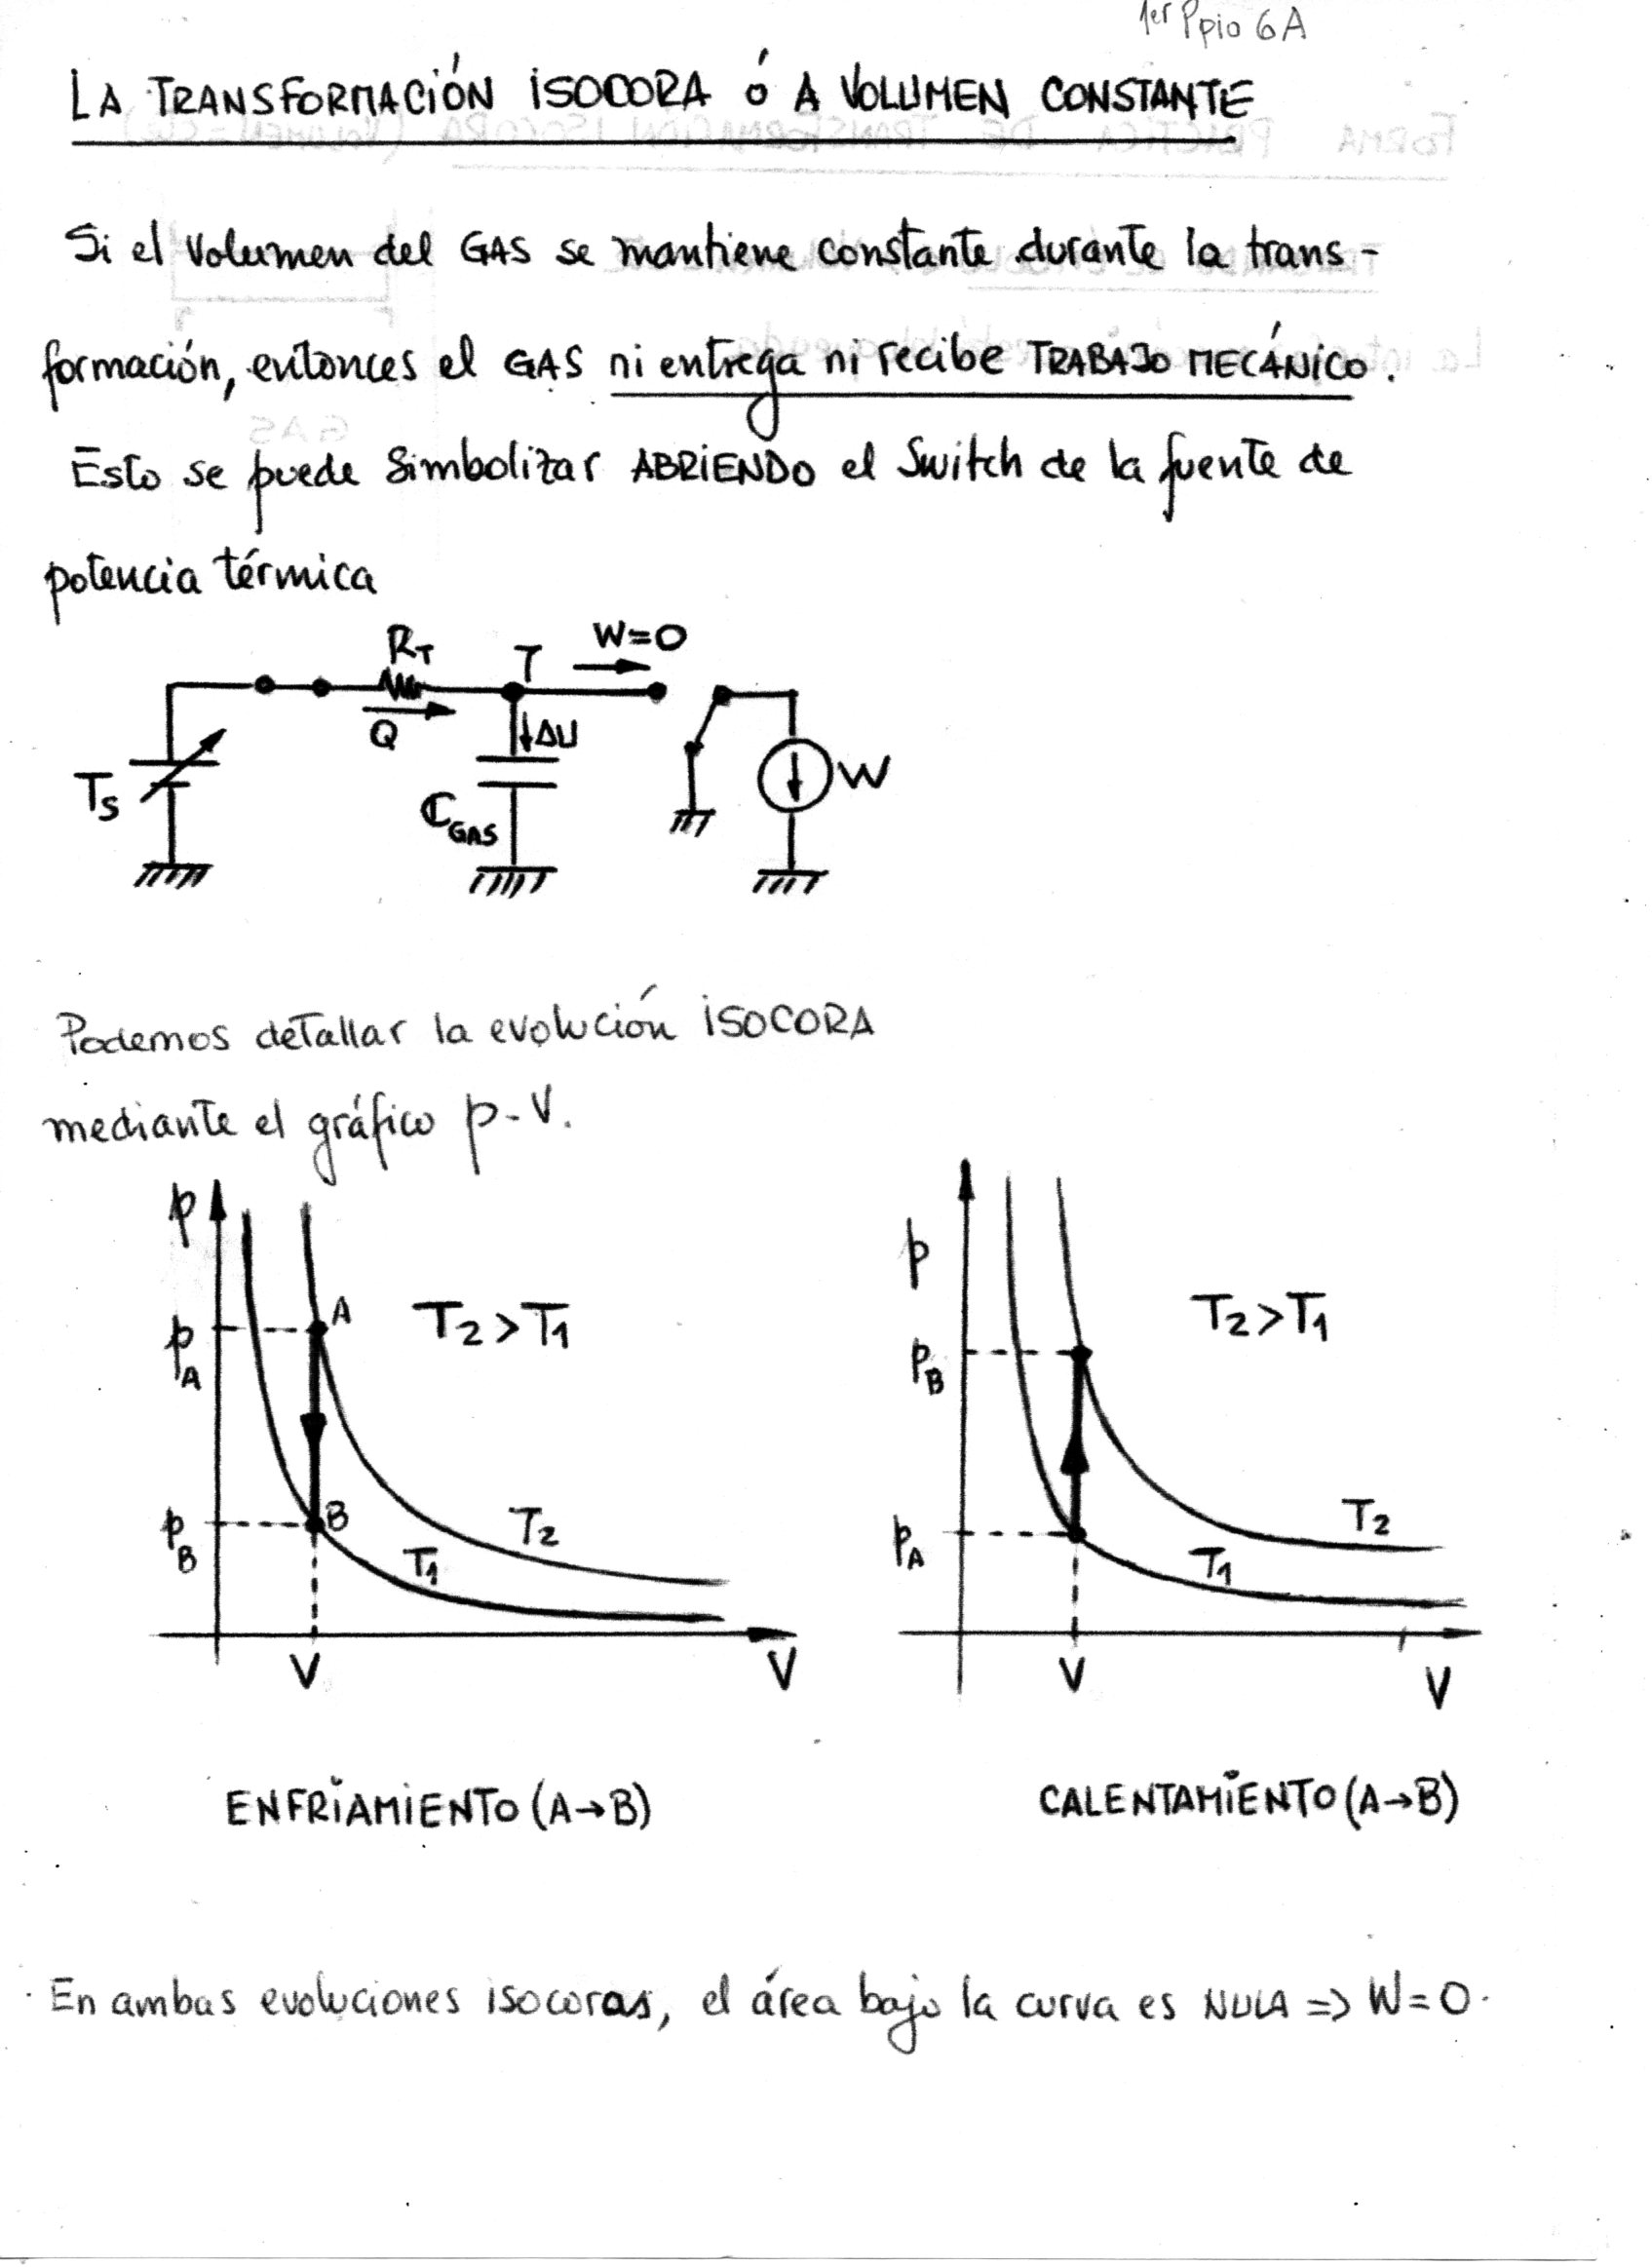 1er Ppio 6A
LA TRANSFORMACIÓN ISOCORA ó A VOLUMEN CONSTANTE
Si el Volumen del GAS se mantiene constante durante la trans-
formación, entonces el GAS ni entrega ni recibe TRABAJO MECÁNICO.
Esto se puede Simbolizar ABRIENDO el Switch de la fuente de
potencia térmica
RT T W=0
Q ΔU
TS CGAS W
Podemos detallar la evolución ISOCORA
mediante el gráfico p-V.
p
A T2>T1
pA
B T2
pB T1
V V
p
T2>T1
pB
T2
pA T1
V V
ENFRIAMIENTO (A→B) CALENTAMIENTO (A→B)
En ambas evoluciones isocoras, el área bajo la curva es NULA => W=0.